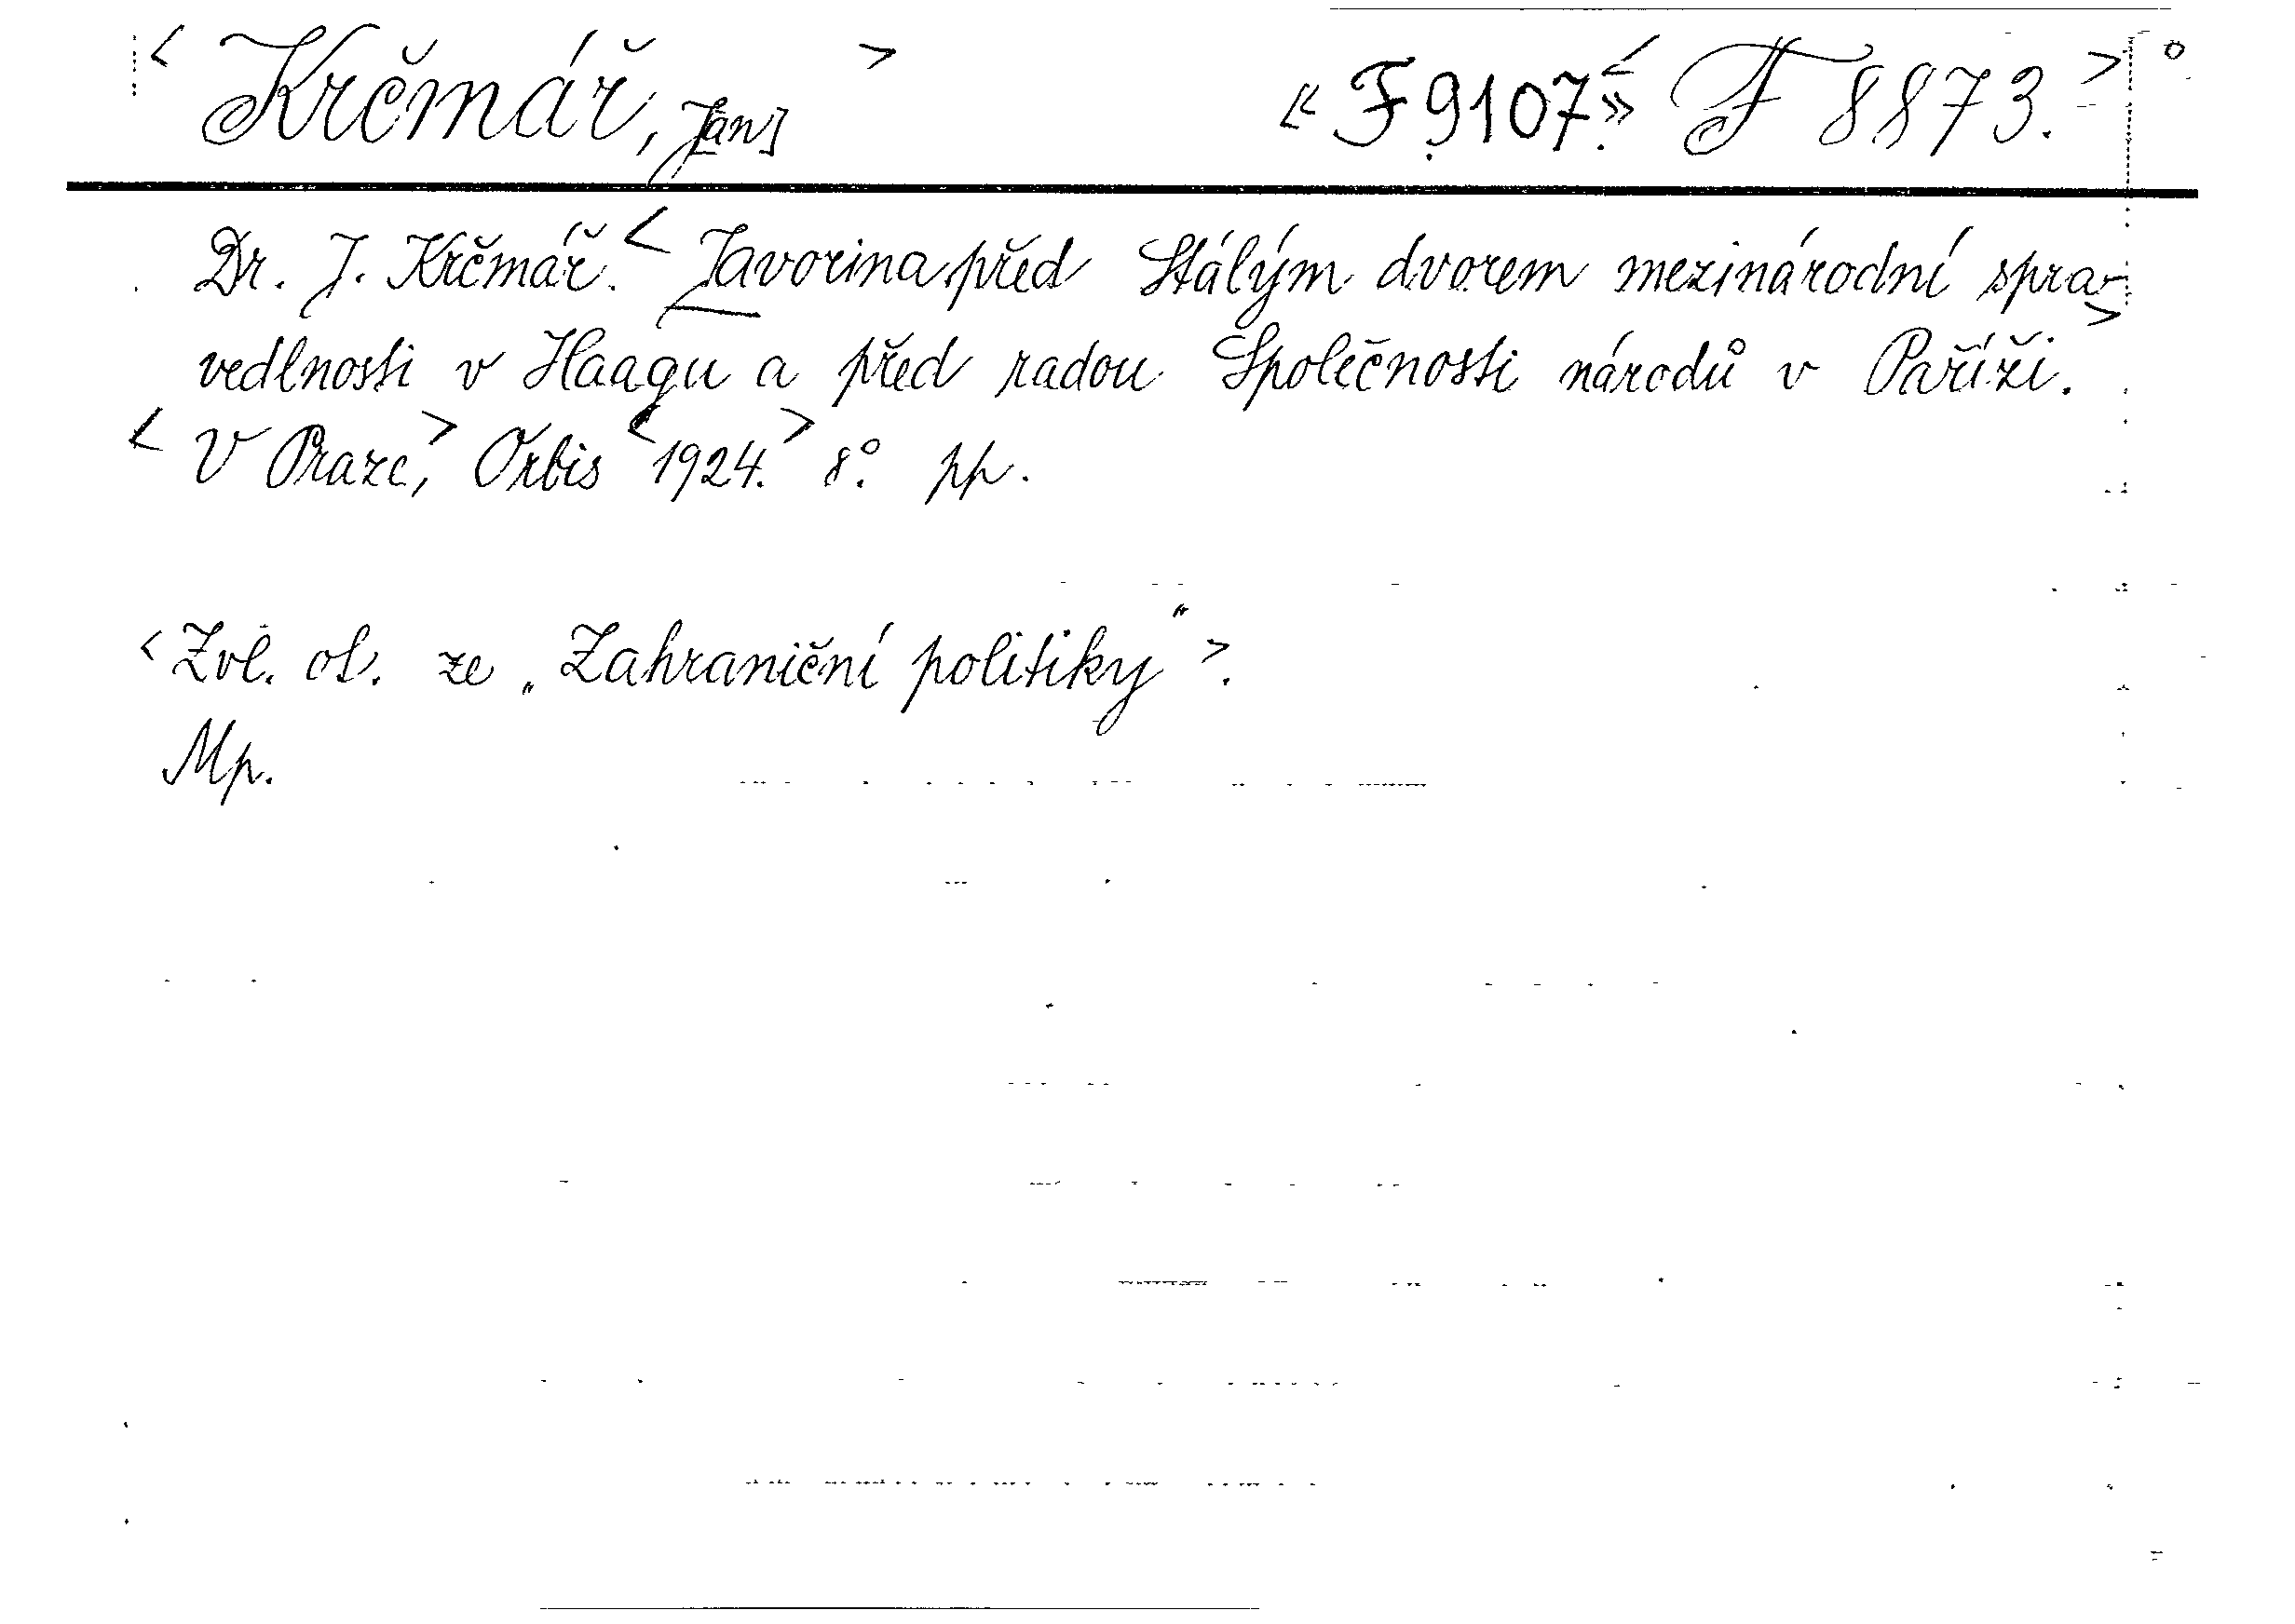 < Krčmář, Jan] > « F 9107.» < F 8873. >
Dr. J. Krčmář. < Javorina před Stálým dvorem mezinárodní spra-
vedlnosti v Haagu a před radou Společnosti národů v Paříži. >
< V Praze, > Orbis < 1924. > 8°. pp.
< Zvl. ob. ze „Zahraniční politiky" >.
Mp.